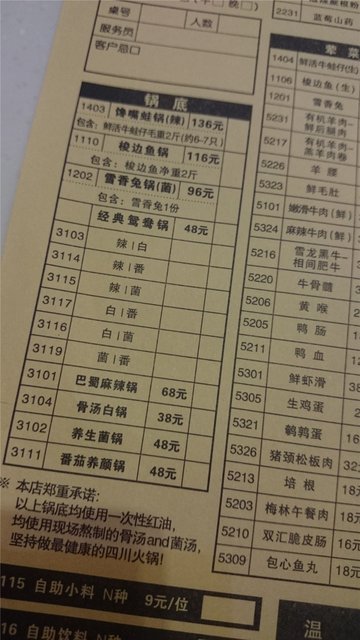 桌号
人数
服务员
客户总
锅底
1403 馋嘴蛙锅(辣) 136元
包含: 鲜活牛蛙仔毛重2斤(约6-7只)
1110 梭边鱼锅 116元
包含: 梭边鱼净重2斤
1202 雪香兔锅(菌) 96元
包含: 雪香兔1份
经典鸳鸯锅 48元
3103 辣|白
3114 辣|番
3115 辣|菌
3117 白|番
3116 白|菌
3119 菌|番
3101 巴蜀麻辣锅 68元
3104 骨汤白锅 38元
3102 养生菌锅 48元
3111 番茄养颜锅 48元
※ 本店郑重承诺:
以上锅底均使用一次性红油,
均使用现场熬制的骨汤and菌汤,
坚持做最健康的四川火锅!
115 自助小料 N种 9元/位
16 自助饮料 N种
2231 蓝莓山药
荤菜
1404 鲜活牛蛙仔(生)
1106 梭边鱼(生)
1201 雪香兔
5231 有机羊肉-鲜后腿肉
5217 有机羊肉-羔羊肉卷
5226 羊腰
5323 鲜毛肚
5101 嫩滑牛肉(鲜)
5324 麻辣牛肉(鲜)
5216 雪龙黑牛-相间肥牛
5220 牛骨髓
5206 黄喉
5205 鸭肠
5211 鸭血
5301 鲜虾滑
5305 生鸡蛋
5321 鹌鹑蛋
5326 猪颈松板肉
5213 培根 18元
5203 梅林午餐肉 18元
5210 双汇脆皮肠 16元
5309 包心鱼丸 18元
温